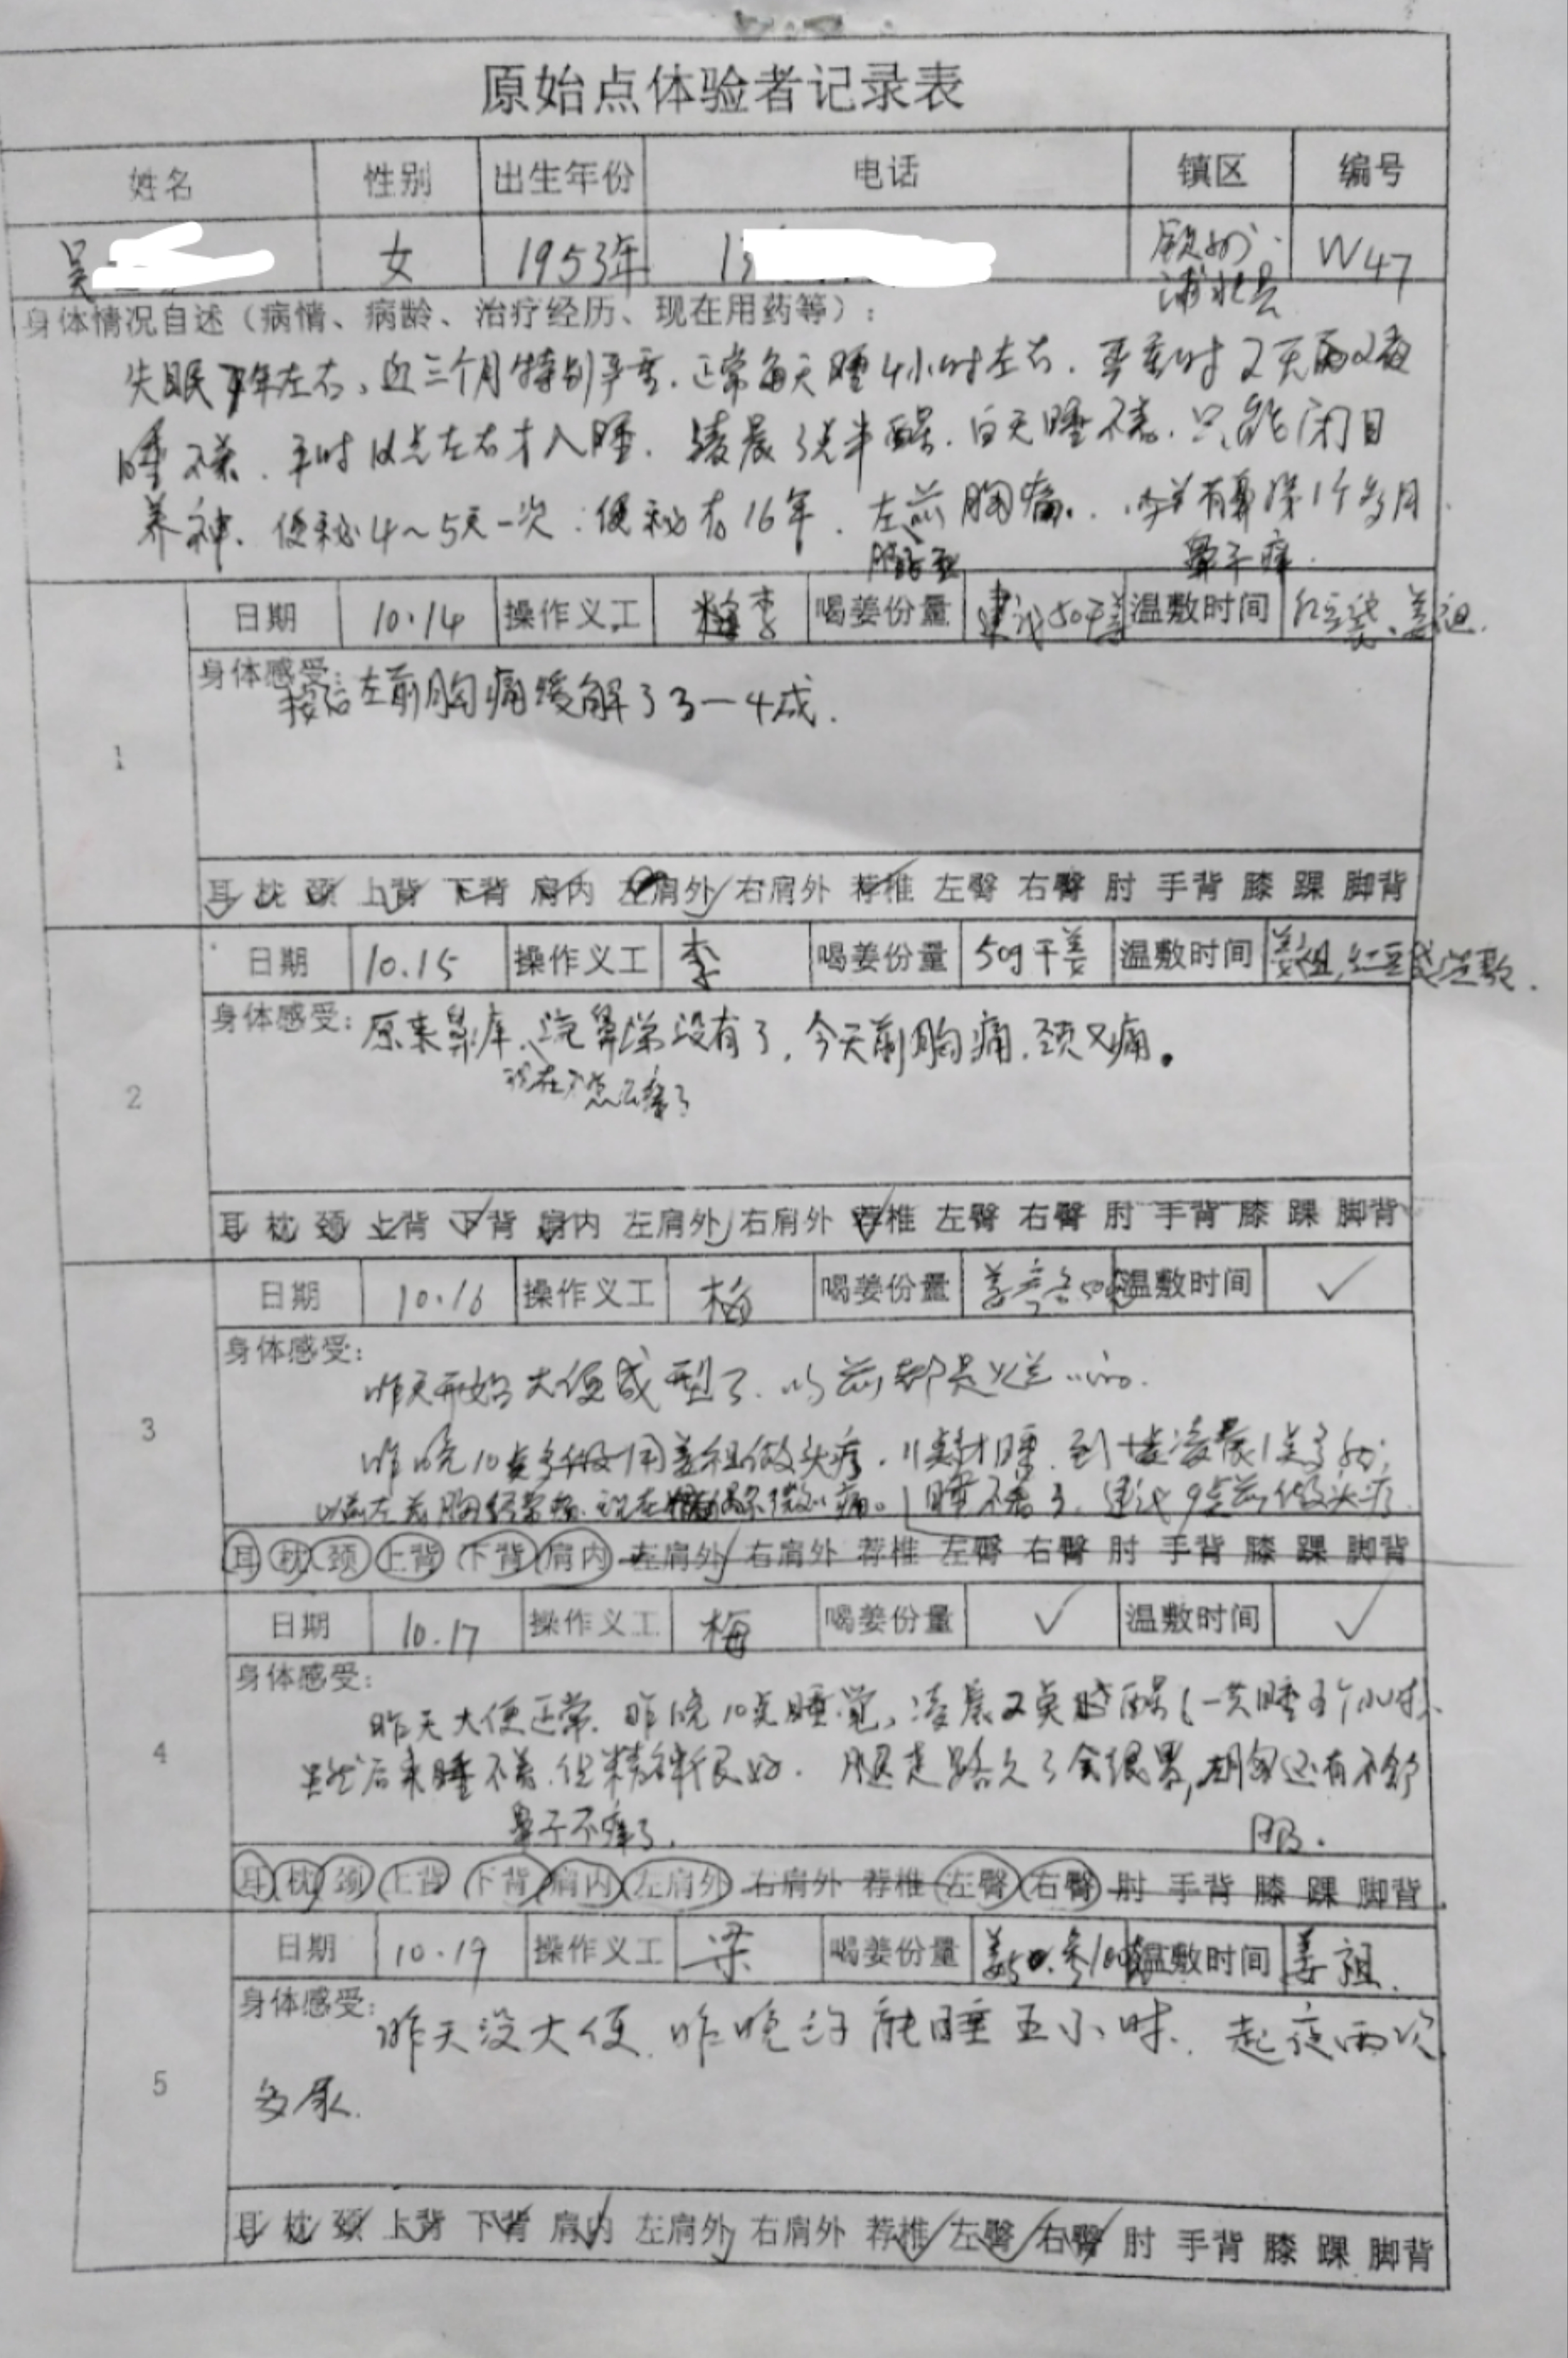 原始点体验者记录表
姓名 性别 出生年份 电话 镇区 编号
吴 女 1953年 13 钦州 W47
浦北县
身体情况自述（病情、病龄、治疗经历、现在用药等）：
失眠 年左右、近三个月特别严重.正常每天睡4小时左右.严重时2天 2夜
睡不着.平时 点左右才入睡.凌晨3点半醒.白天睡不着.只能闭目
养神.便秘4~5天一次:便秘有16年.左前胸痛. 有鼻 1个多月
鼻子痒.
日期 10.14 操作义工 梅李 喝姜份量 建议50干姜 温敷时间 红豆袋、姜祖.
身体感受:
按后左前胸痛缓解了3一4成.
1
耳 枕 颈 上背 下背 肩内 左肩外 右肩外 荐椎 左臀 右臀 肘 手背 膝 踝 脚背
日期 10.15 操作义工 李 喝姜份量 50g干姜 温敷时间 姜祖,红豆袋温敷.
身体感受: 原来鼻 、 没有了,今天前胸痛.颈又痛。
现在不怎么痒了
2
耳 枕 颈 上背 下背 肩内 左肩外 右肩外 荐椎 左臀 右臀 肘 手背 膝 踝 脚背
日期 10.16 操作义工 梅 喝姜份量 温敷时间 ✓
身体感受:
昨天开始大便成型了.以前都是
3
昨晚10点多 用姜祖做头疗.11点才睡.到 凌晨1点多
以前左前胸经常痛.现在 偶尔微微痛。睡不着了.建议9点前做头疗
耳 枕 颈 上背 下背 肩内 左肩外 右肩外 荐椎 左臀 右臀 肘 手背 膝 踝 脚背
日期 10.17 操作义工 梅 喝姜份量 ✓ 温敷时间 ✓
身体感受:
昨天大便正常.昨晚10点睡觉,凌晨 醒(一共睡5个小时.
4
虽然后来睡不着.但精神很好. 腿走路久了会很累,胸 还有不舒
鼻子不痒了. 服.
耳 枕 颈 上背 下背 肩内 左肩外 右肩外 荐椎 左臀 右臀 肘 手背 膝 踝 脚背
日期 10.19 操作义工 梁 喝姜份量 姜50.参100 温敷时间 姜祖.
身体感受: 昨天没大便.昨晚 能睡五小时. 起夜两次
5
多尿.
耳 枕 颈 上背 下背 肩内 左肩外 右肩外 荐椎 左臀 右臀 肘 手背 膝 踝 脚背